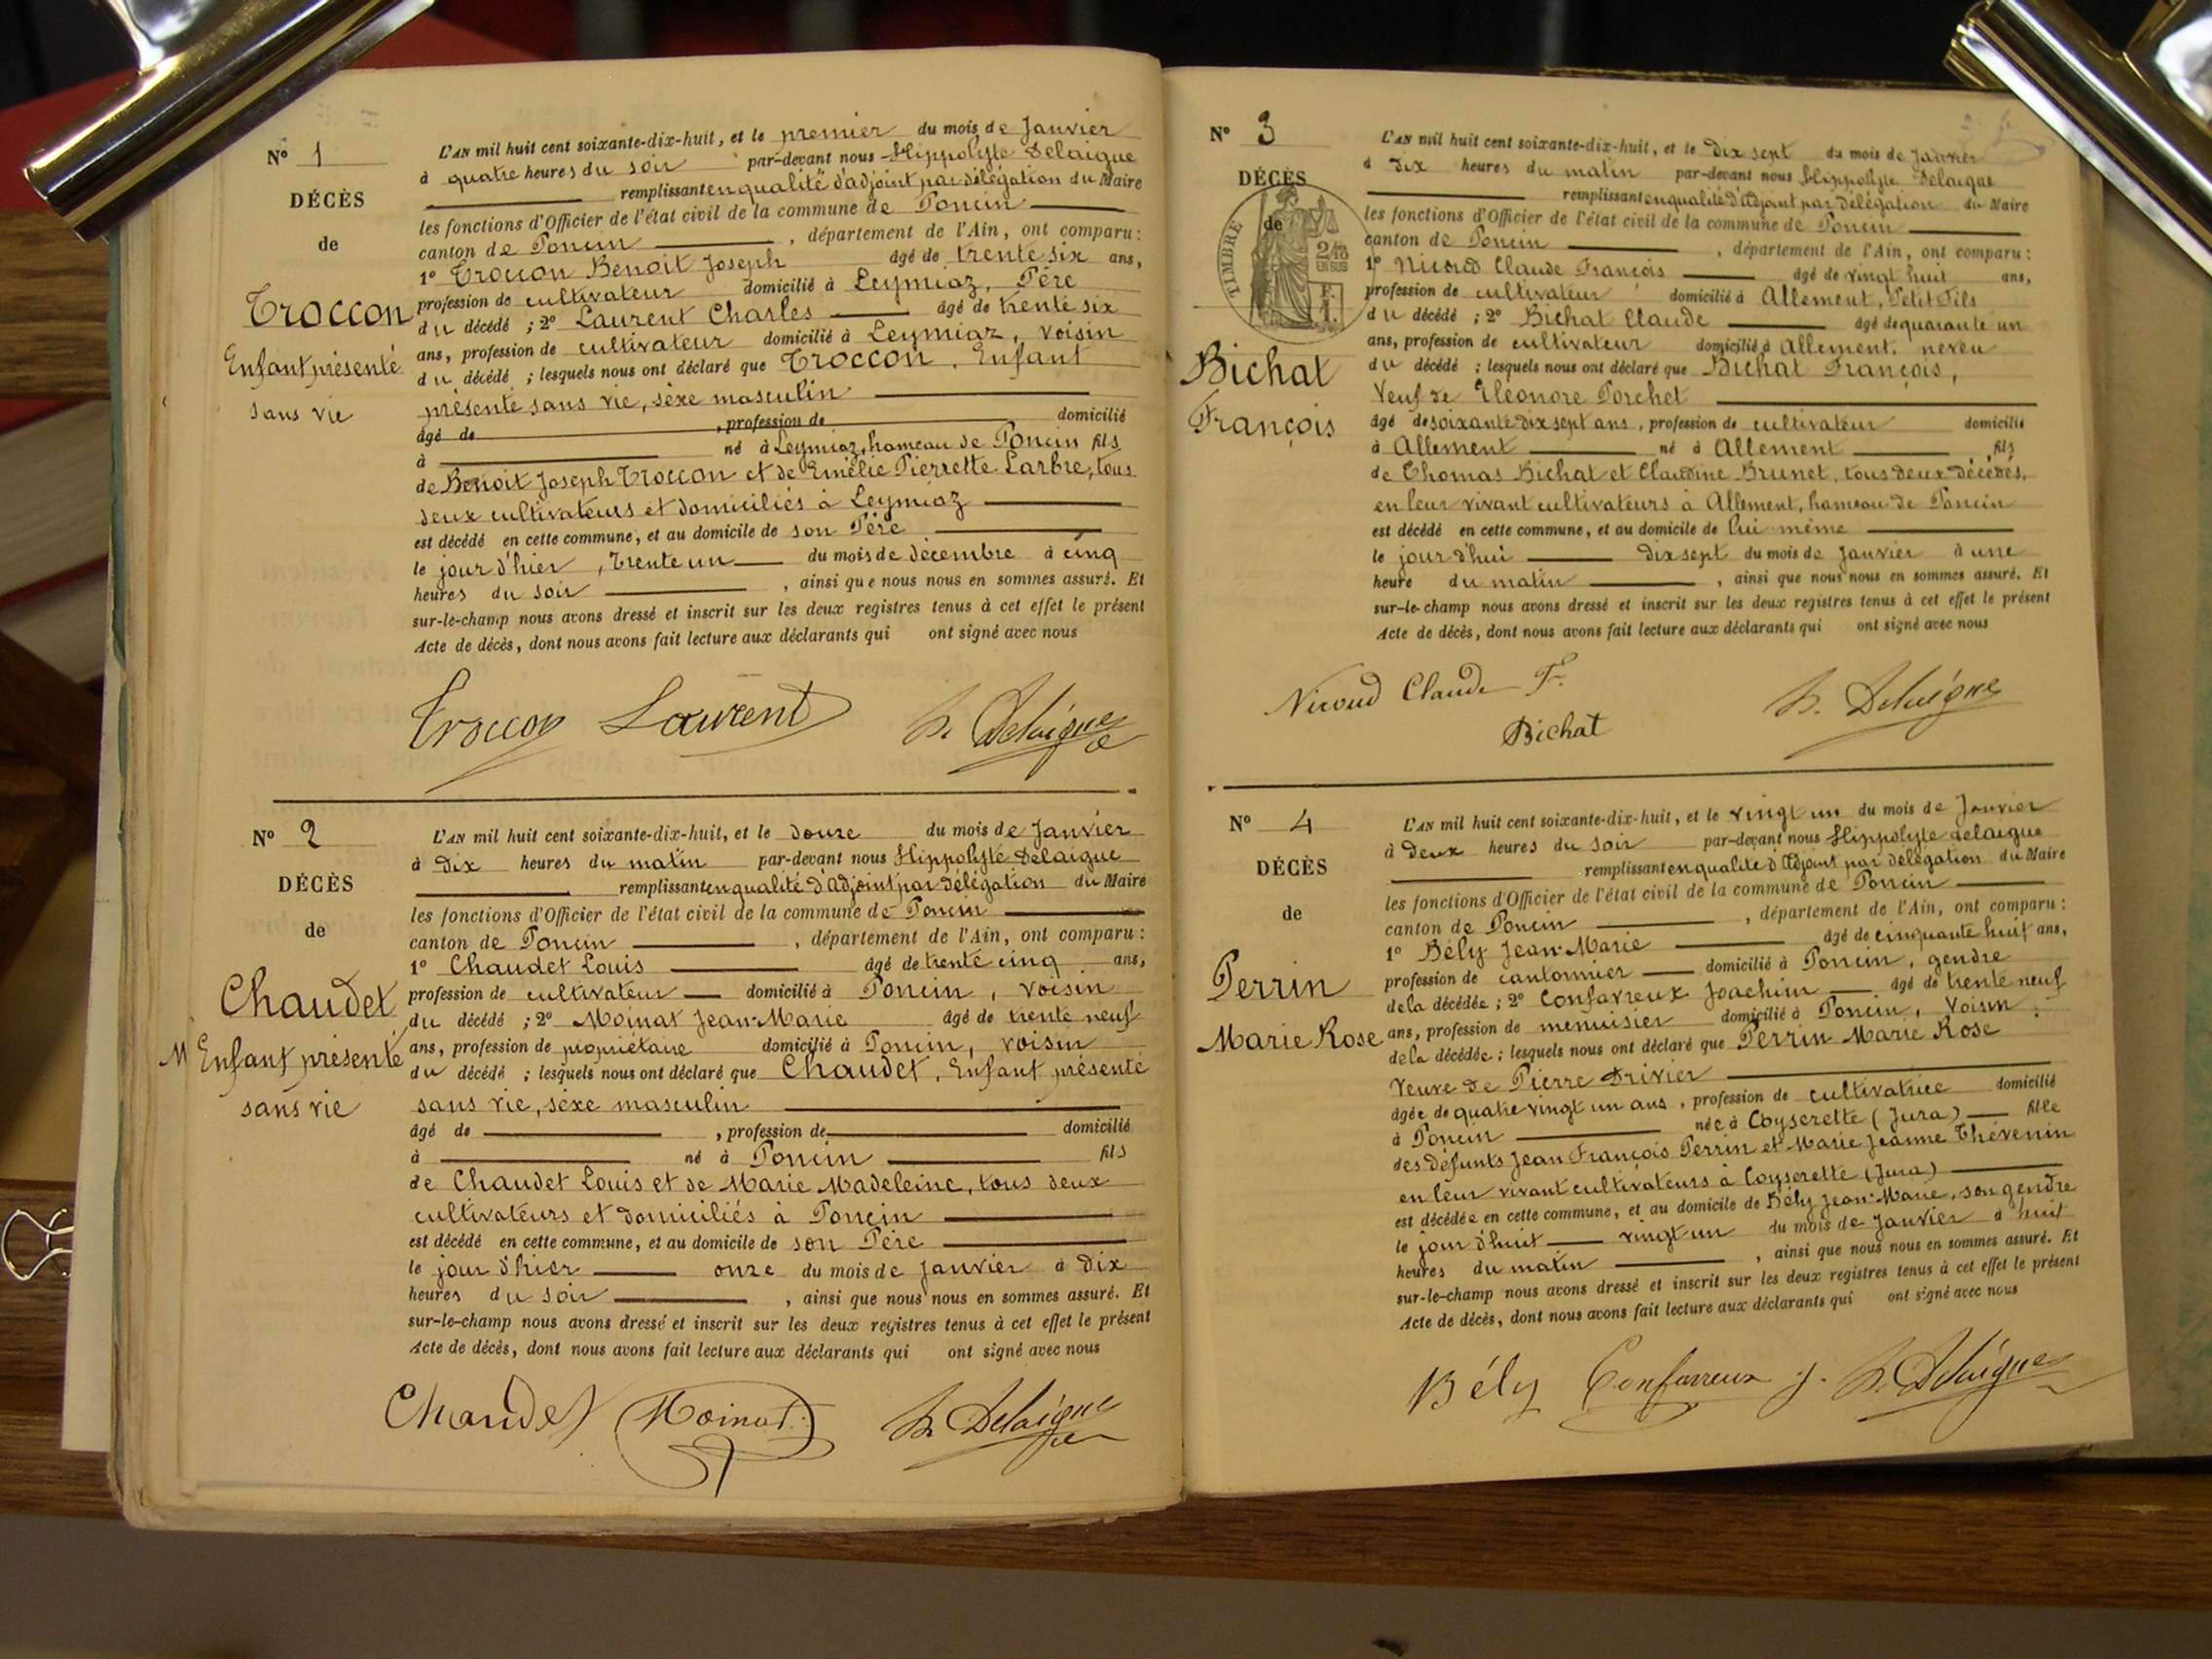 N° 1
DÉCÈS
de
Troccon
Enfant présenté
sans vie
L'AN mil huit cent soixante-dix-huit, et le premier du mois de Janvier
à quatre heures du soir par-devant nous Hippolyte Delaigue
remplissant en qualité d'adjoint par délégation du Maire
les fonctions d'Officier de l'état civil de la commune de Poncin
canton de Poncin, département de l'Ain, ont comparu:
1° Troccon Benoit Joseph âgé de trente six ans,
profession de cultivateur domicilié à Leymiaz, Père
du décédé ; 2° Laurent Charles âgé de trente six
ans, profession de cultivateur domicilié à Leymiaz, voisin
du décédé ; lesquels nous ont déclaré que Troccon, Enfant
présenté sans vie, sèxe masculin
âgé de , profession de domicilié
à né à Leymiaz, hameau de Poncin fils
de Benoit Joseph Troccon et de Emélie Pierrette Larbre, tous
deux cultivateurs et domiciliés à Leymiaz
est décédé en cette commune, et au domicile de son Père
le jour d'hier, trente un du mois de décembre à cinq
heures du soir , ainsi que nous nous en sommes assuré. Et
sur-le-champ nous avons dressé et inscrit sur les deux registres tenus à cet effet le présent
Acte de décès, dont nous avons fait lecture aux déclarants qui ont signé avec nous
Troccon Laurent h. Delaigue
N° 2
DÉCÈS
de
Chaudet
M Enfant présenté
sans vie
L'AN mil huit cent soixante-dix-huit, et le douze du mois de Janvier
à dix heures du matin par-devant nous Hippolyte Delaigue
remplissant en qualité d'Adjoint par délégation du Maire
les fonctions d'Officier de l'état civil de la commune de Poncin
canton de Poncin , département de l'Ain, ont comparu:
1° Chaudet Louis âgé de trente cinq ans,
profession de cultivateur domicilié à Poncin, voisin
du décédé ; 2° Moinat Jean-Marie âgé de trente neuf
ans, profession de propriétaire domicilié à Poncin, voisin
du décédé ; lesquels nous ont déclaré que Chaudet, Enfant présenté
sans vie, sèxe masculin
âgé de , profession de domicilié
à né à Poncin fils
de Chaudet Louis et de Marie Madeleine, tous deux
cultivateurs et domiciliés à Poncin
est décédé en cette commune, et au domicile de son Père
le jour d'hier onze du mois de Janvier à dix
heures du soir , ainsi que nous nous en sommes assuré. Et
sur-le-champ nous avons dressé et inscrit sur les deux registres tenus à cet effet le présent
Acte de décès, dont nous avons fait lecture aux déclarants qui ont signé avec nous
Chaudet Moinat h. Delaigue
N° 3
DÉCÈS
de
TIMBRE
Bichat
François
L'AN mil huit cent soixante-dix-huit, et le dix sept du mois de Janvier
à dix heures du matin par-devant nous Hippolyte Delaigue
remplissant en qualité d'Adjoint par délégation du Maire
les fonctions d'Officier de l'état civil de la commune de Poncin
canton de Poncin , département de l'Ain, ont comparu:
1° Nicoud Claude François âgé de vingt huit ans,
profession de cultivateur domicilié à Allement, Petit Fils
du décédé ; 2° Bichat Claude âgé de quarante un
ans, profession de cultivateur domicilié à Allement. neveu
du décédé ; lesquels nous ont déclaré que Bichat François,
Veuf de Eléonore Porchet
âgé de soixante dix sept ans, profession de cultivateur domicilié
à Allement né à Allement fils
de Thomas Bichat et Claudine Brunet, tous deux décédés,
en leur vivant cultivateurs à Allement, hameau de Poncin
est décédé en cette commune, et au domicile de lui-même
le jour d'hui dix sept du mois de Janvier à une
heure du matin , ainsi que nous nous en sommes assuré. Et
sur-le-champ nous avons dressé et inscrit sur les deux registres tenus à cet effet le présent
Acte de décès, dont nous avons fait lecture aux déclarants qui ont signé avec nous
Nicoud Claude F. h. Delaigue
Bichat
N° 4
DÉCÈS
de
Perrin
Marie Rose
L'AN mil huit cent soixante-dix-huit, et le vingt un du mois de Janvier
à deux heures du soir par-devant nous Hippolyte delaigue
remplissant en qualité d'Adjoint par délégation du Maire
les fonctions d'Officier de l'état civil de la commune de Poncin
canton de Poncin , département de l'Ain, ont comparu:
1° Bély Jean-Marie âgé de cinquante huit ans,
profession de cantonnier domicilié à Poncin, gendre
de la décédée ; 2° Confavreux Joachim âgé de trente neuf
ans, profession de menuisier domicilié à Poncin, voisin
de la décédée ; lesquels nous ont déclaré que Perrin Marie Rose
Veuve de Pierre Drivier
âgée de quatre vingt un ans, profession de cultivatrice domicilié
à Poncin née à Coyserette (Jura) fille
des défunts Jean François Perrin et Marie Jeanne Thévenin
en leur vivant cultivateurs à Coyserette (Jura)
est décédée en cette commune, et au domicile de Bély Jean-Marie, son gendre
le jour d'hui vingt un du mois de Janvier à huit
heures du matin , ainsi que nous nous en sommes assuré. Et
sur-le-champ nous avons dressé et inscrit sur les deux registres tenus à cet effet le présent
Acte de décès, dont nous avons fait lecture aux déclarants qui ont signé avec nous
Bély Confavreux J. h. Delaigue